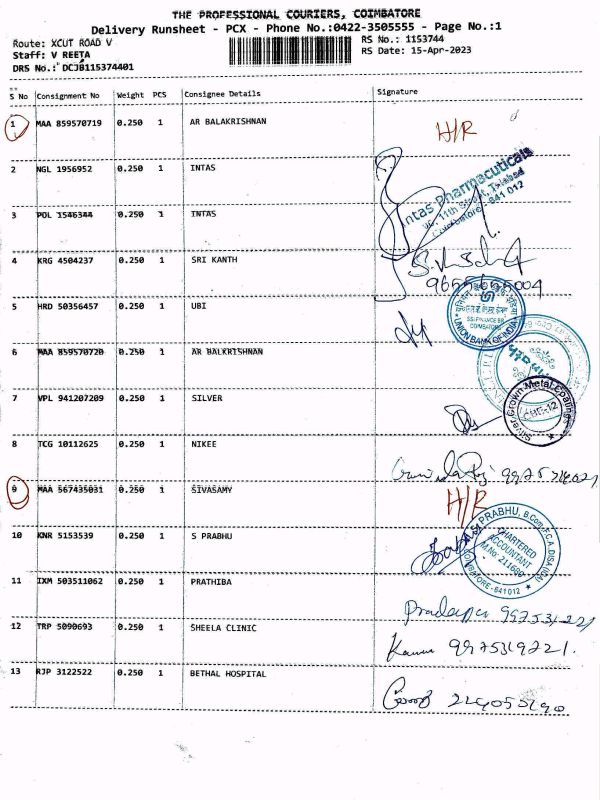 THE PROFESSIONAL COURIERS, COIMBATORE
Delivery Runsheet - PCX - Phone No.:0422-3505555 - Page No.:1
Route: XCUT ROAD V
RS No.: 1153744
Staff: V REETA
RS Date: 15-Apr-2023
DRS No.: DCJB115374401
S No Consignment No Weight PCS Consignee Details Signature
1 MAA 859570719 0.250 1 AR BALAKRISHNAN H/R
2 NGL 1956952 0.250 1 INTAS
Intas Pharmaceuticals
Coimbatore - 641 012
3 POL 1546344 0.250 1 INTAS
4 KRG 4504237 0.250 1 SRI KANTH
5 HRD 50356457 0.250 1 UBI
SSI FINANCE BR.
COIMBATORE
UNION BANK OF INDIA
6 MAA 859570720 0.250 1 AR BALKRISHNAN
7 VPL 941207209 0.250 1 SILVER
Silver Crown Metal Coatings
CBE-12
8 TCG 10112625 0.250 1 NIKEE
9 MAA 567435031 0.250 1 SIVASAMY H/R
10 KNR 5153539 0.250 1 S PRABHU
S. PRABHU, B.Com, F.C.A, DISA (ICA)
CHARTERED
ACCOUNTANT
M.No: 211680
COIMBATORE-641012
11 IXM 503511062 0.250 1 PRATHIBA
12 TRP 5090693 0.250 1 SHEELA CLINIC
9975319221.
13 RJP 3122522 0.250 1 BETHAL HOSPITAL